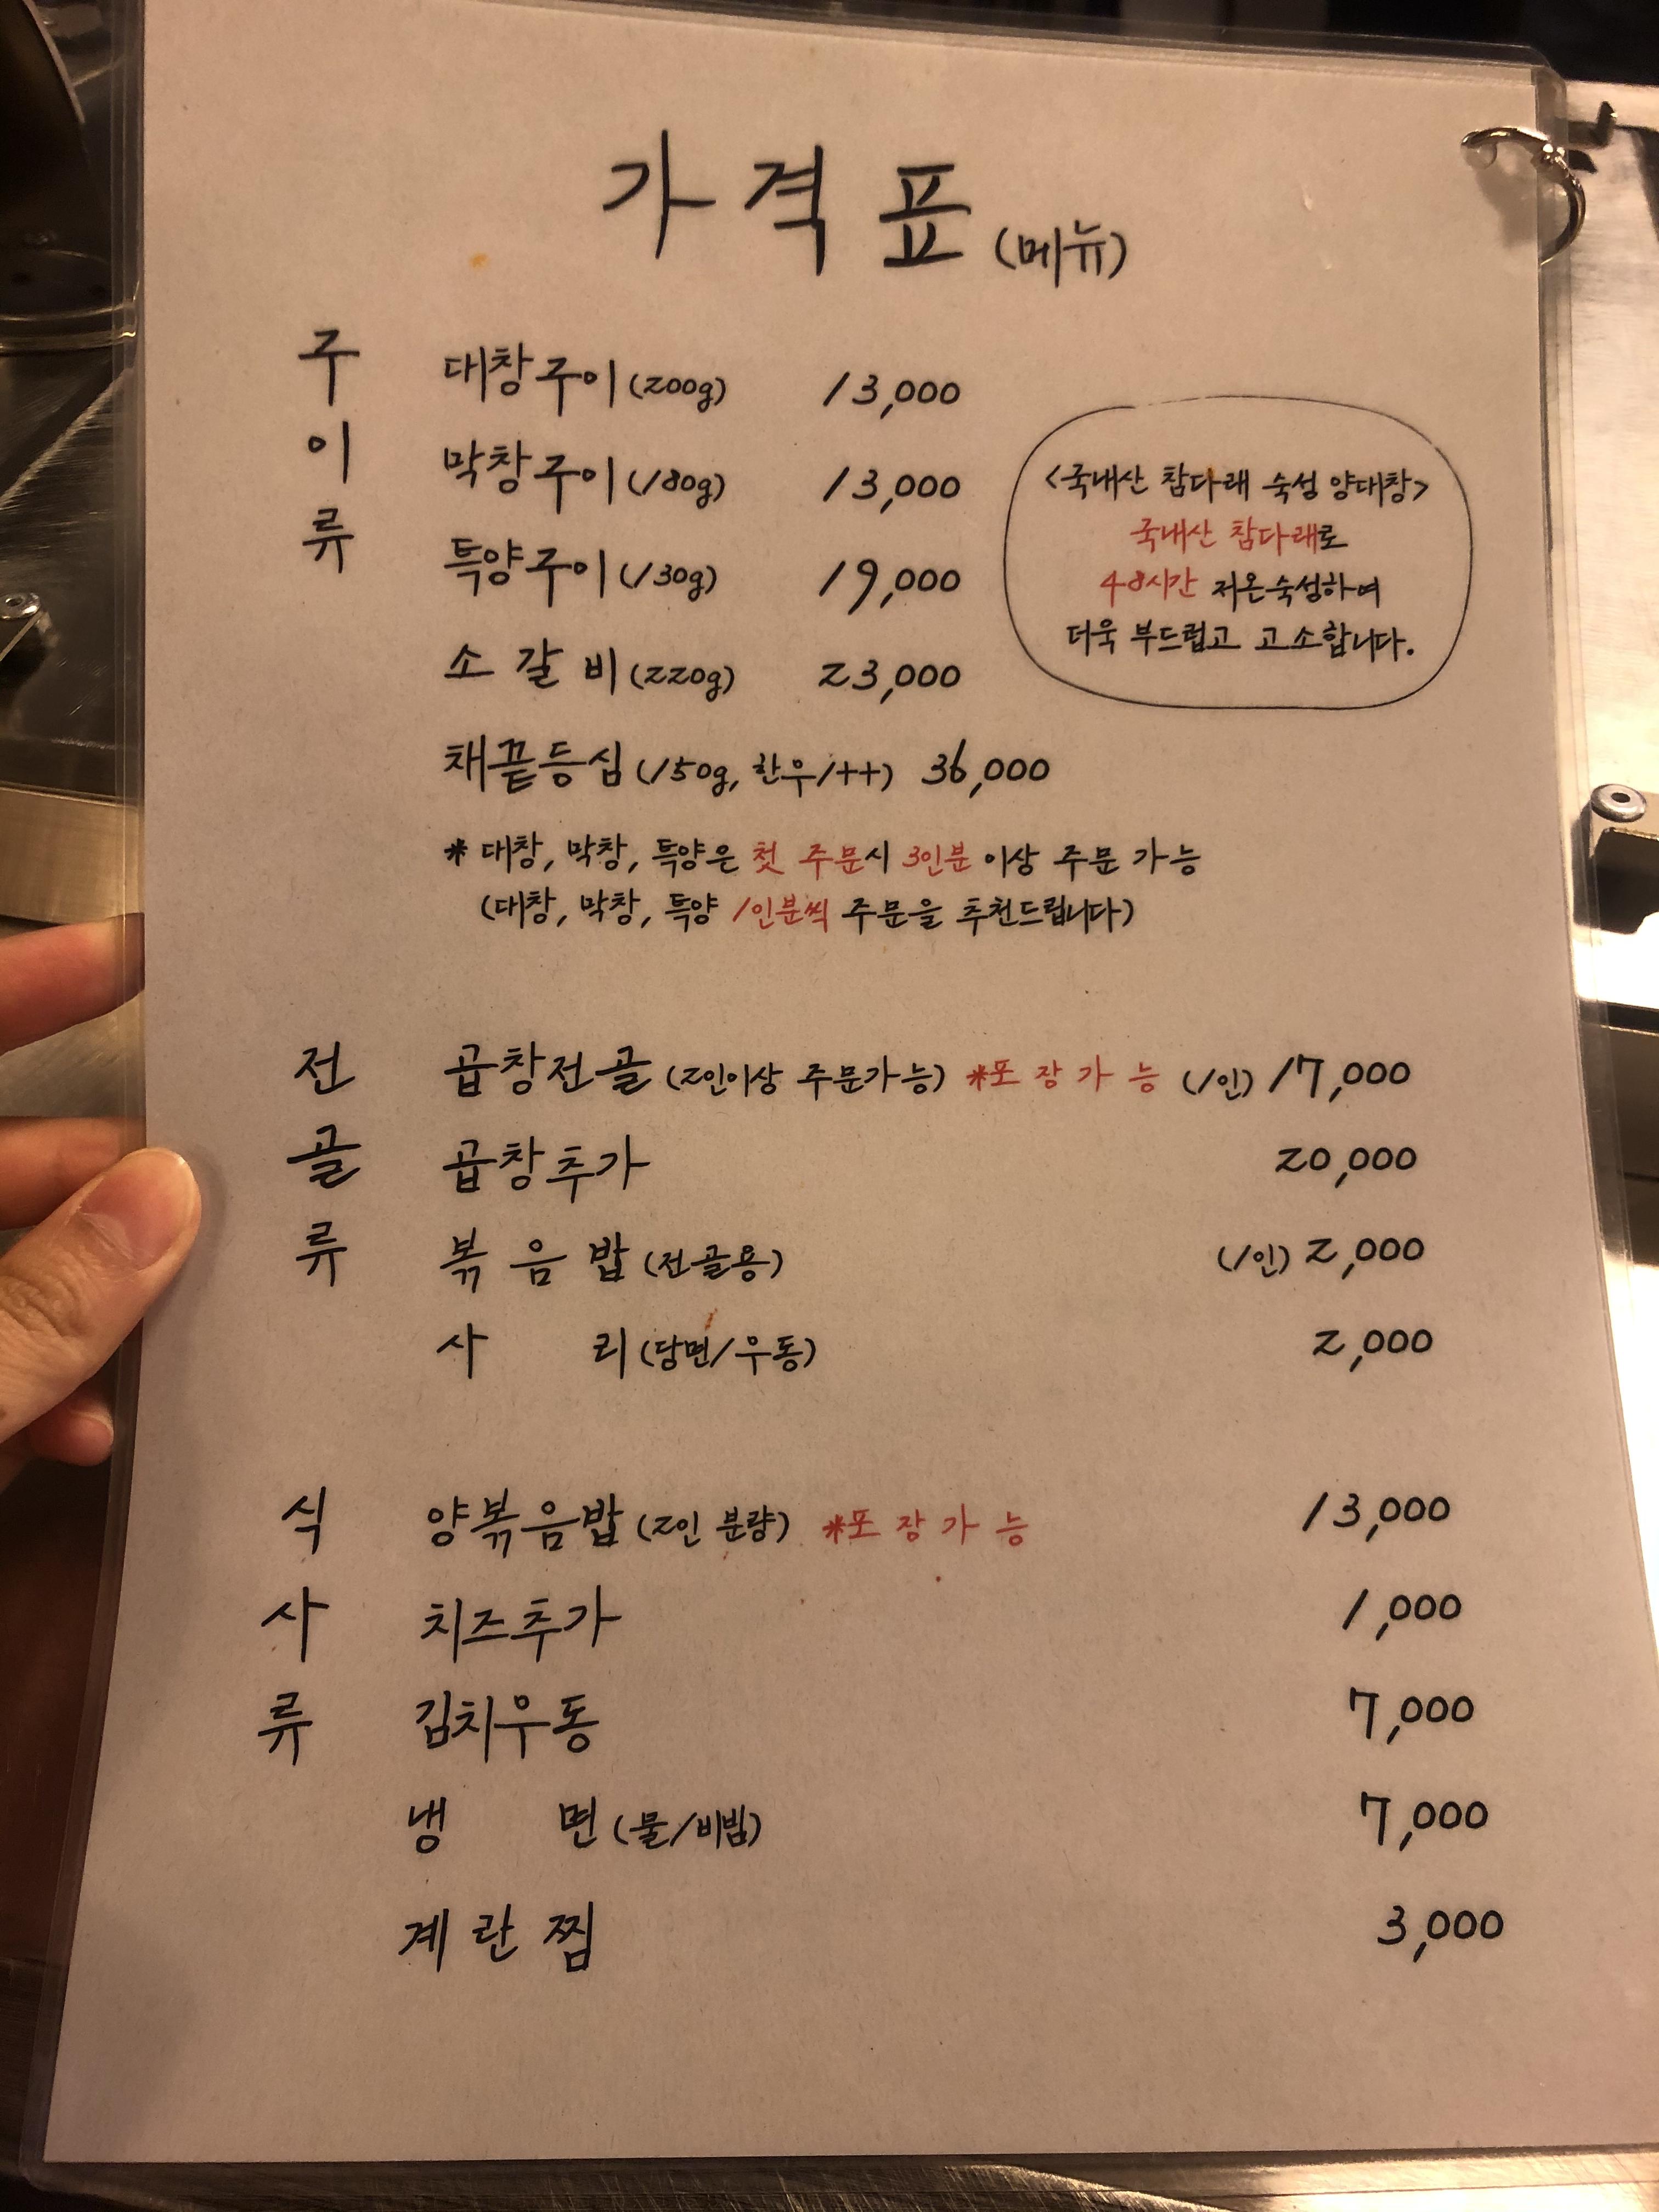 가격표 (메뉴)
구이류
대창구이 (200g) 13,000
막창구이 (180g) 13,000
특양구이 (130g) 19,000
소갈비 (220g) 23,000
채끝등심 (150g, 한우1++) 36,000
<국내산 참다래 숙성 양대창>
국내산 참다래로
48시간 저온숙성하여
더욱 부드럽고 고소합니다.
* 대창, 막창, 특양은 첫 주문시 3인분 이상 주문 가능
(대창, 막창, 특양 1인분씩 주문을 추천드립니다)
전골류
곱창전골 (2인이상 주문가능) *포장가능 (1인) 17,000
곱창추가 20,000
볶음밥 (전골용) (1인) 2,000
사리 (당면/우동) 2,000
식사류
양볶음밥 (2인 분량) *포장가능 13,000
치즈추가 1,000
김치우동 7,000
냉면 (물/비빔) 7,000
계란찜 3,000